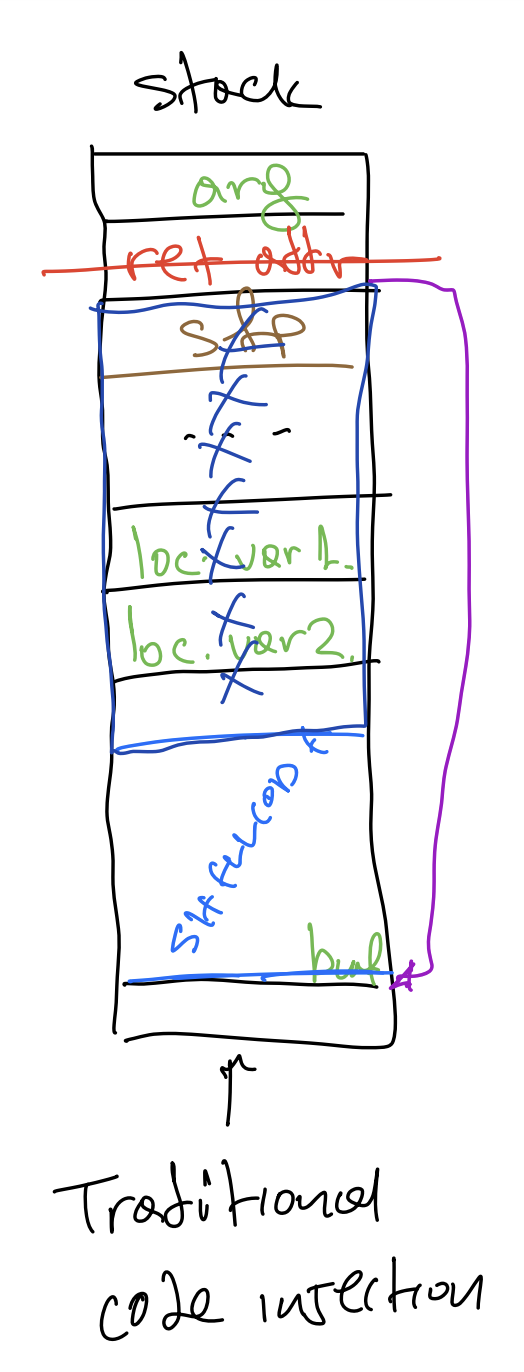 stack
arg
ret addr
sfp
- - -
loc. var 1.
loc. var 2.
SHELLCODE
buf
Traditional
code injection